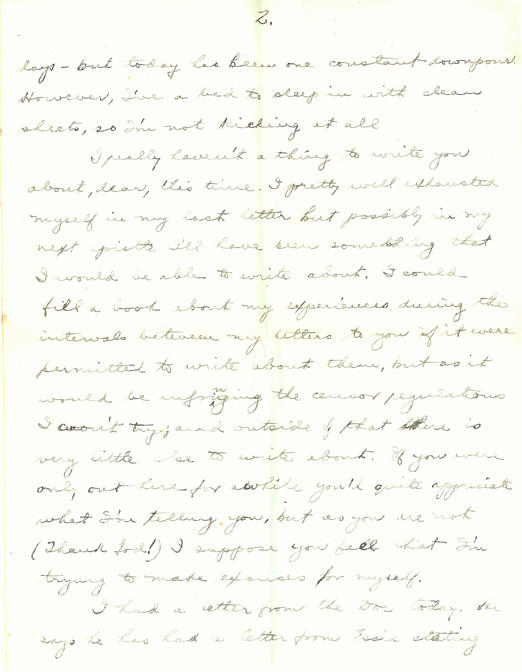 2.
lays - but today has been one constant downpour.
However, I've a bed to sleep in with clean
sheets, so I'm not kicking at all
I really haven't a thing to write you
about, dear, this time. I pretty well exhausted
myself in my last letter but possibly in my
next epistle I'll have seen something that
I would be able to write about. I could
fill a book about my experiences during the
intervals between my letters to you if it were
permitted to write about them, but as it
would be infringing the censor regulations
I won't try; and outside of that there is
very little else to write about. If you were
only out here for awhile you'd quite appreciate
what I'm telling you, but as you are not
(Thank God!) I suppose you feel that I'm
trying to make excuses for myself.
I had a letter from the Doc today. He
says he has had a letter from Essie stating